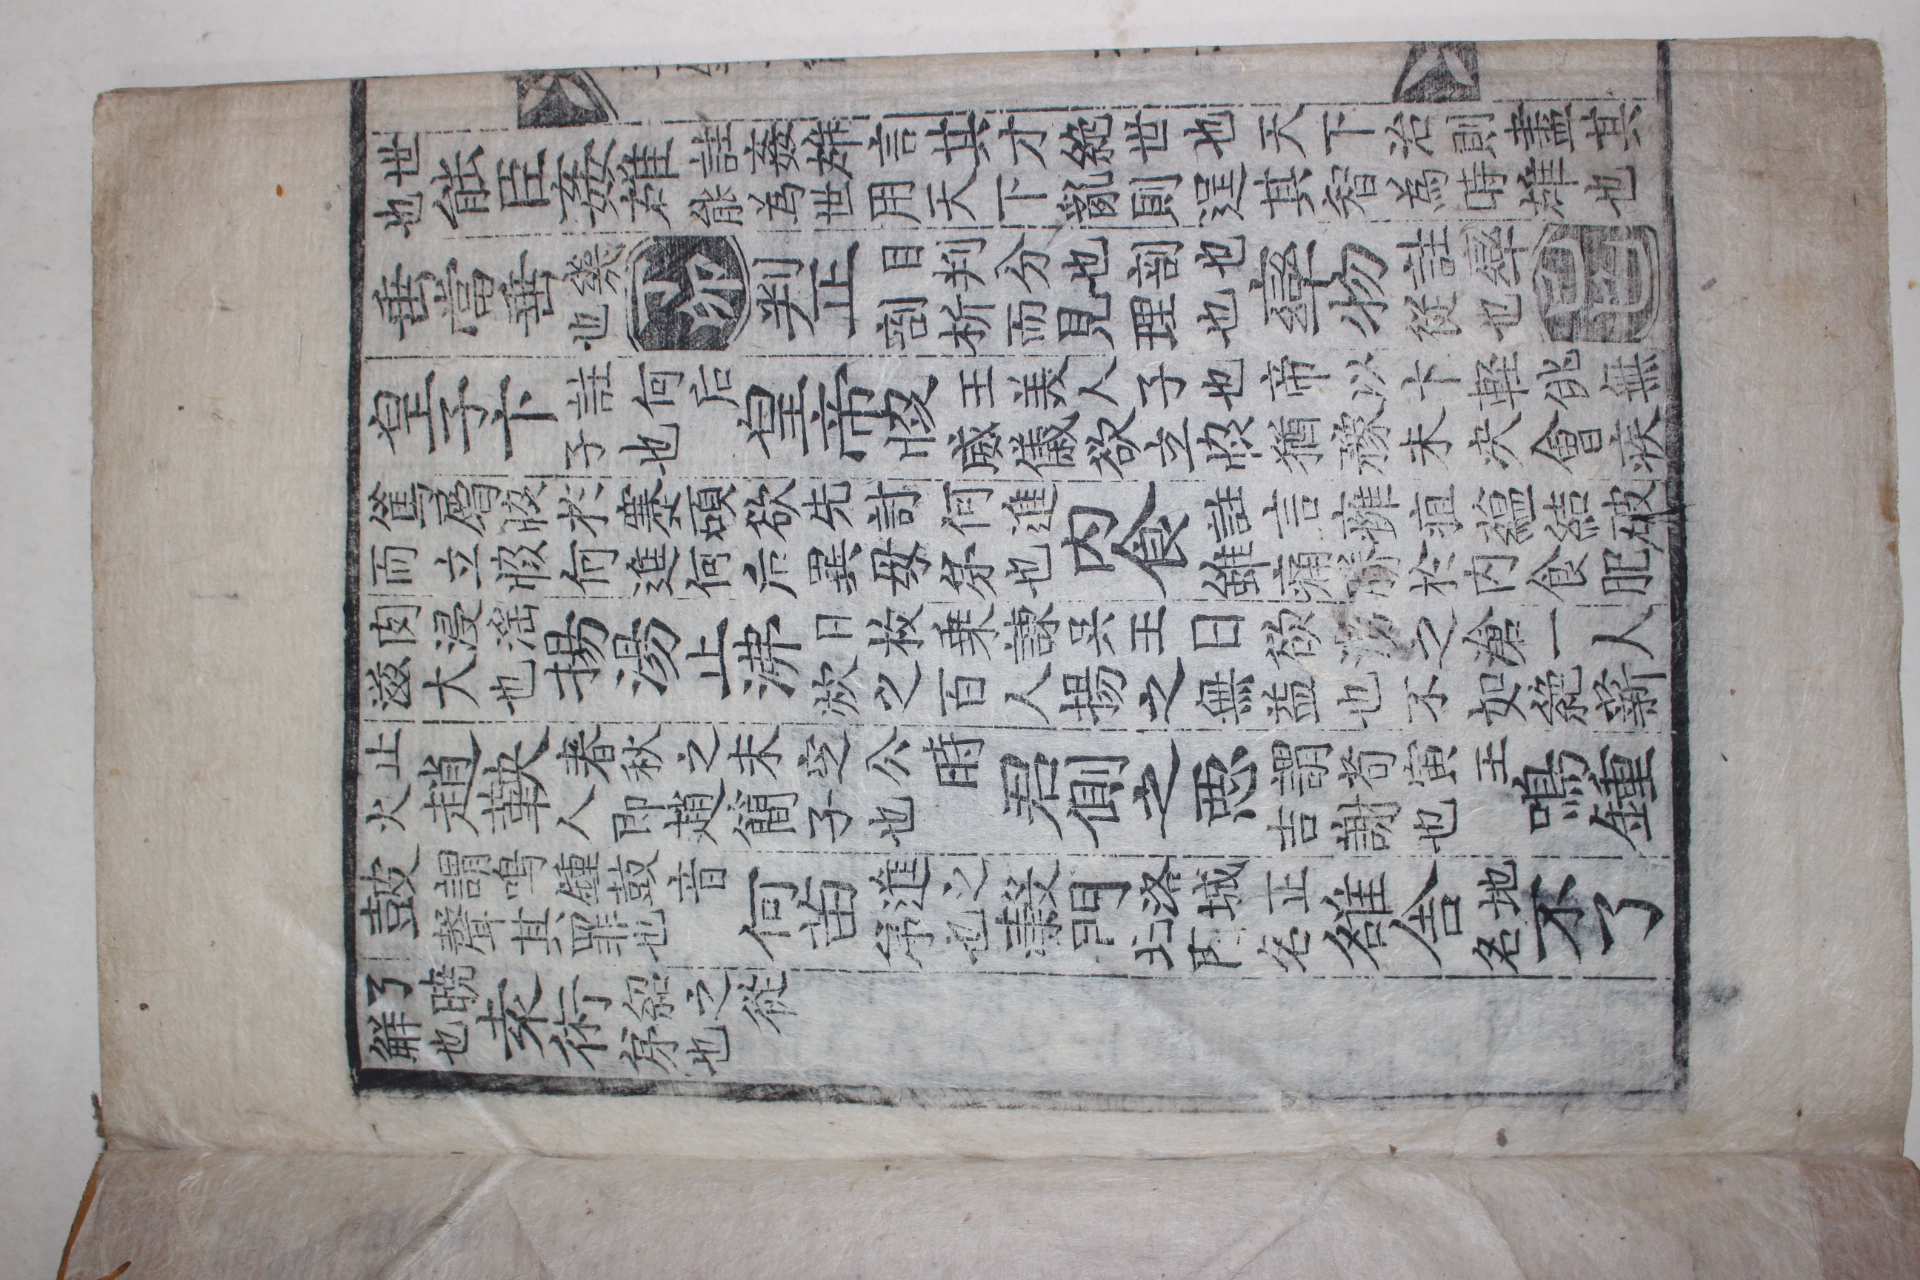 世也能臣姦雄註姦雄言其才絶世也天下治則盡其能為世用天下亂則逞其智為時雄也
垂當垂幾也丁卯判正目判分也剖也剖析而見理也孿物註孿從也己巳
皇子卞註何后子也皇帝恊王美人子也帝以卞輕佻無威儀欲立恊猶豫未决會疾
篤屬恊於蹇碩欲先討何進而立恊何進何后異母弟也內食註言癰疽蘊結破雖痛勝於內食肥
肉浸淫滋大也揚湯止沸目枚乗諫吳王曰欲湯之滄一人炊之百人揚之無益也不如絶薪
止火趙鞅春秋之末定公時人即趙簡子也君側之惡謂荀寅王吉謝也鳴鍾
鼓謂鳴鍾鼓音聲其罪也何苗進之弟也穀門洛城正北門名雒舍地名不了
了曉解也袁術紹之從弟也